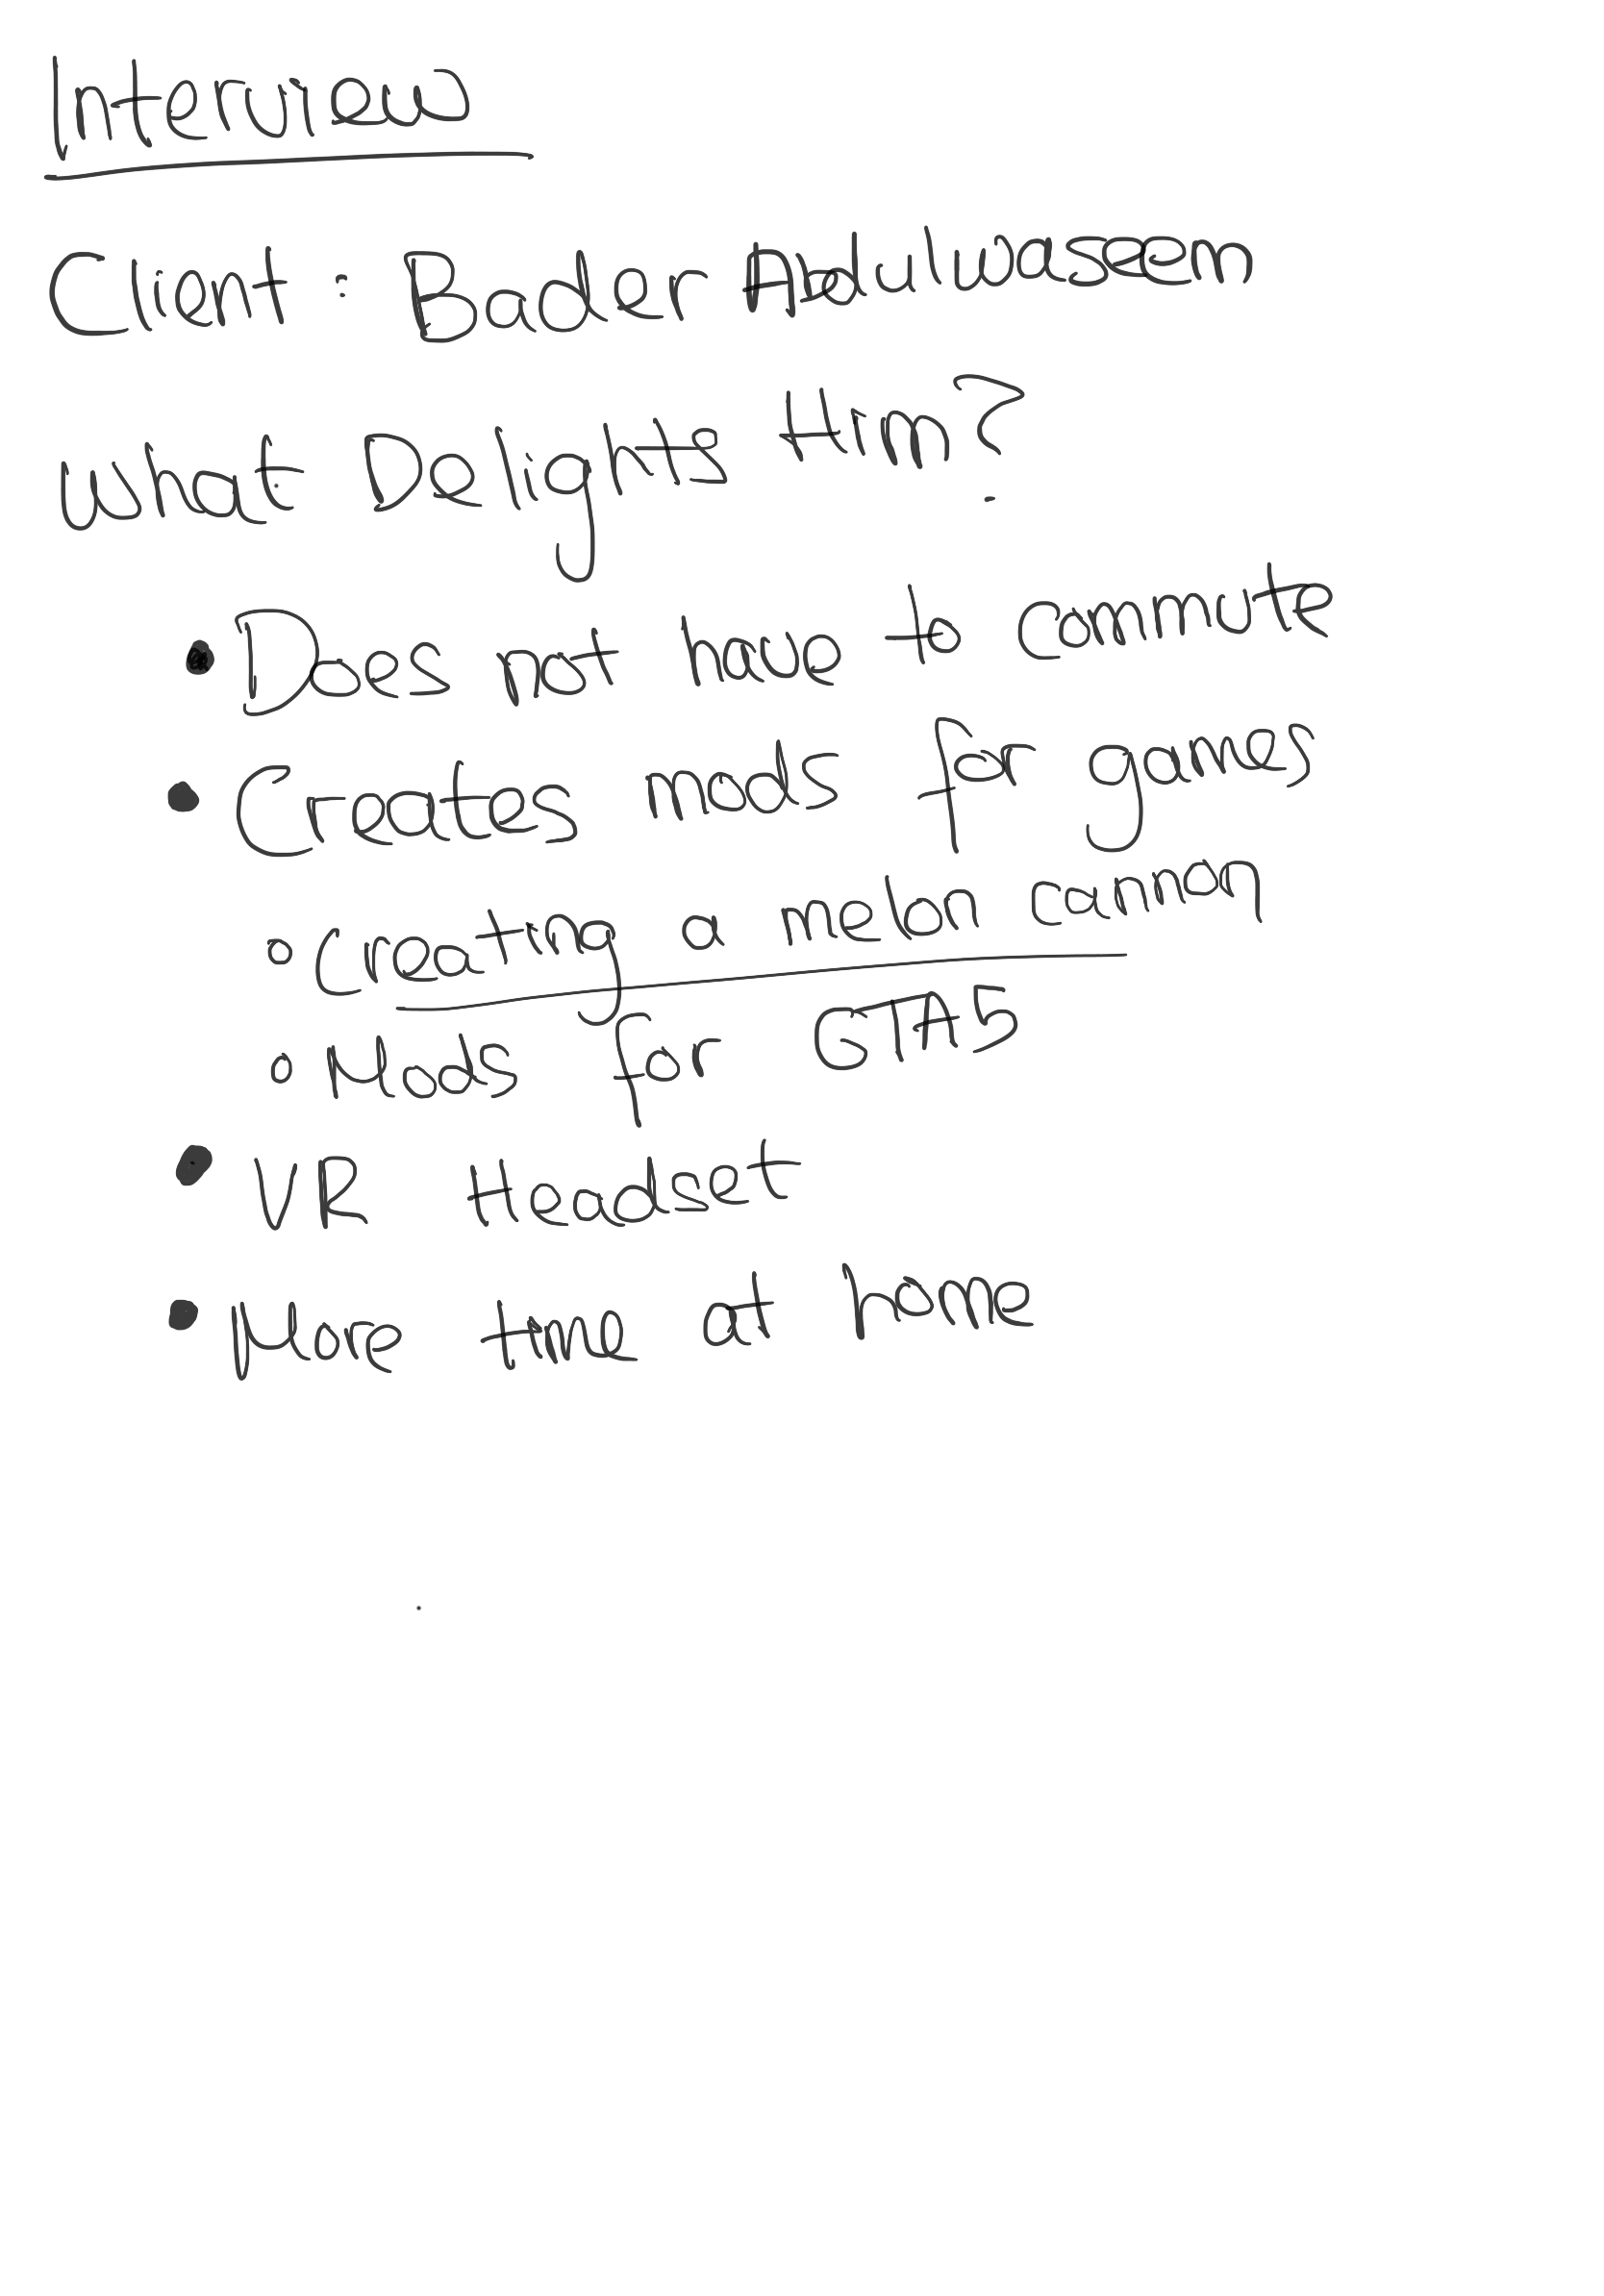 Interview
Client: Bader Abdulwaseem
What Delights Him?
• Does not have to commute
• Creates mods for games
◦ Creating a melon cannon
◦ Mods for GTA5
• VR Headset
• More time at home